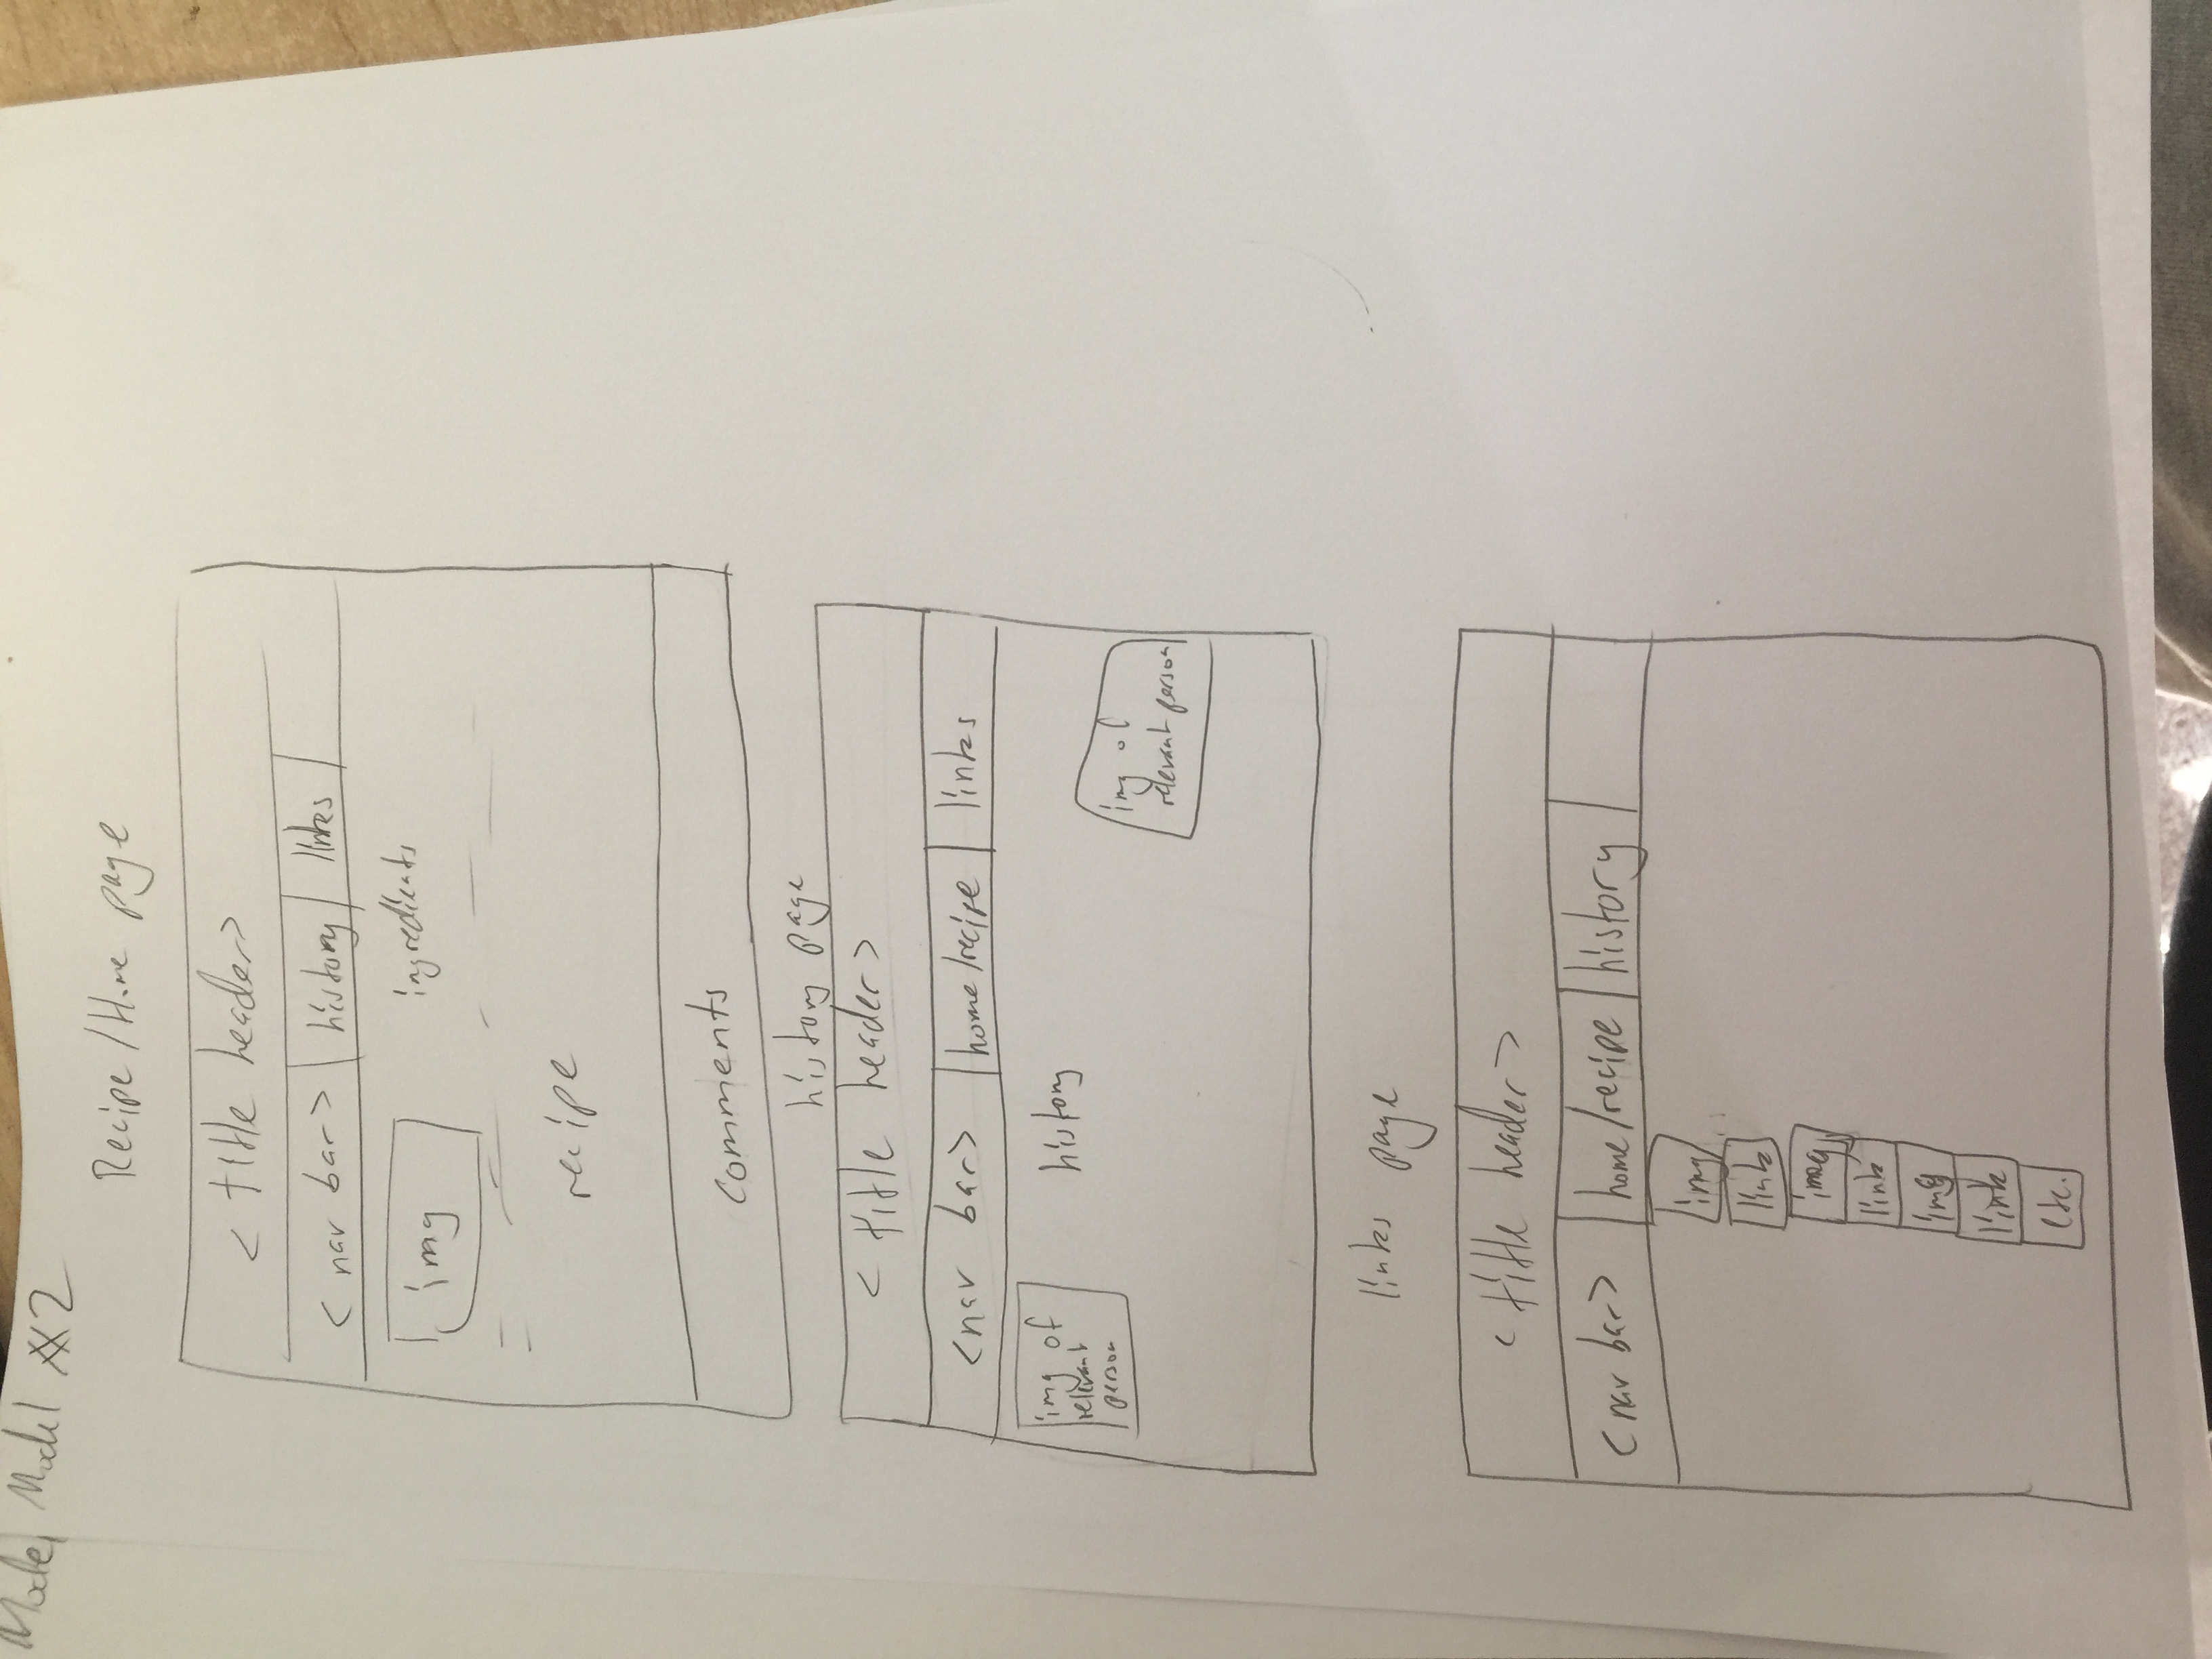 Model Model #2
Recipe/Home page
< title header>
< nav bar> history links
img ingredients
recipe
comments
history page
< title header>
<nav bar> home/recipe links
img of
relevant
person
history
img of
relevant person
links page
< title header>
<nav bar> home/recipe history
img
link
img
link
img
link
etc.